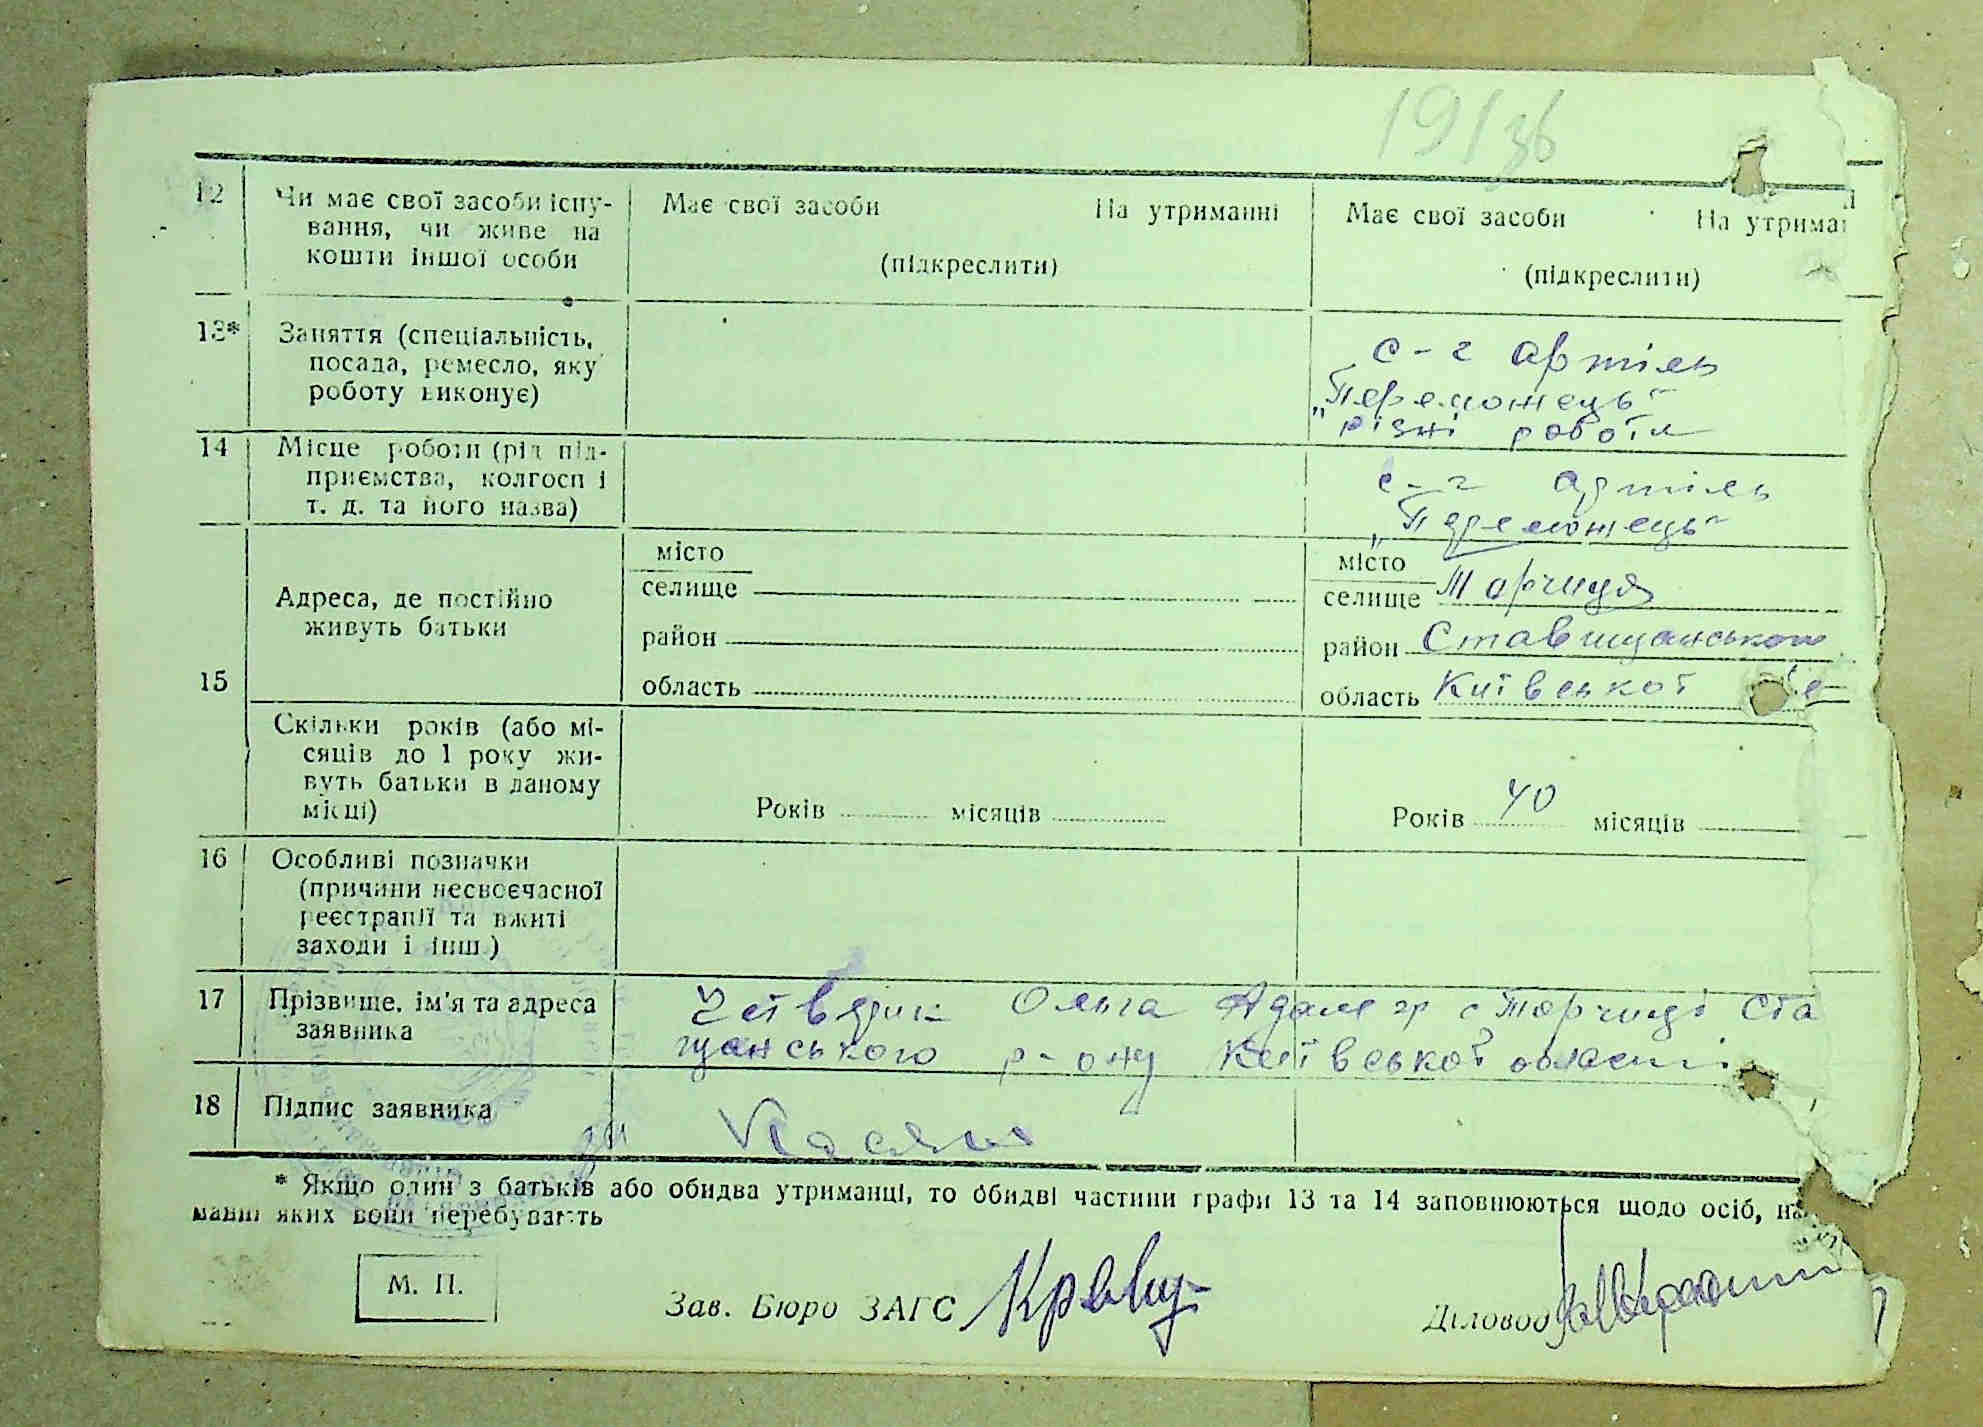 191 зв
12 Чи має свої засоби існу- Має свої засоби На утриманні Має свої засоби На утрима
вання, чи живе на
кошти іншої особи (підкреслити) (підкреслити)
13* Заняття (спеціальність, с-г артіль
посада, ремесло, яку „Переможець"
роботу виконує) різні роботи
14 Місце роботи (рід під- с-г артіль
приємства, колгосп і „Переможець"
т. д. та його назва)
місто місто
Адреса, де постійно селище селище Торчиця
живуть батьки район район Ставищанського
15 область область Київської
Скільки років (або мі-
сяців до 1 року жи-
вуть батьки в даному
місці) Років місяців Років 40 місяців
16 Особливі позначки
(причини несвоєчасної
реєстрації та вжиті
заходи і інш.)
17 Прізвище, ім'я та адреса Ольга Адам гр с Торчиці Ста
заявника щанського р-ону Київської області
18 Підпис заявника
* Якщо один з батьків або обидва утриманці, то обидві частини графи 13 та 14 заповнюються щодо осіб, на
манні яких вони перебувають
М. П.
Зав. Бюро ЗАГС Діловод